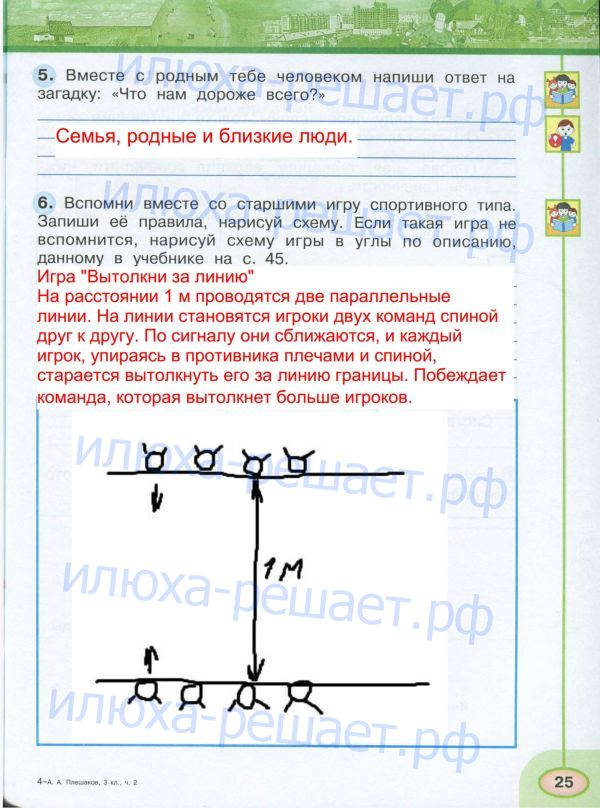 5. Вместе с родным тебе человеком напиши ответ на
загадку: «Что нам дороже всего?»
илюха-решает.рф
Семья, родные и близкие люди.
илюха-решает.рф
6. Вспомни вместе со старшими игру спортивного типа.
Запиши её правила, нарисуй схему. Если такая игра не
вспомнится, нарисуй схему игры в углы по описанию,
данному в учебнике на с. 45.
Игра "Вытолкни за линию"
На расстоянии 1 м проводятся две параллельные
линии. На линии становятся игроки двух команд спиной
друг к другу. По сигналу они сближаются, и каждый
игрок, упираясь в противника плечами и спиной,
старается вытолкнуть его за линию границы. Побеждает
команда, которая вытолкнет больше игроков.
илюха-решает.рф
1 м
илюха-решает.рф
илюха-решает.рф
4–А. А. Плешаков, 3 кл., ч. 2
25